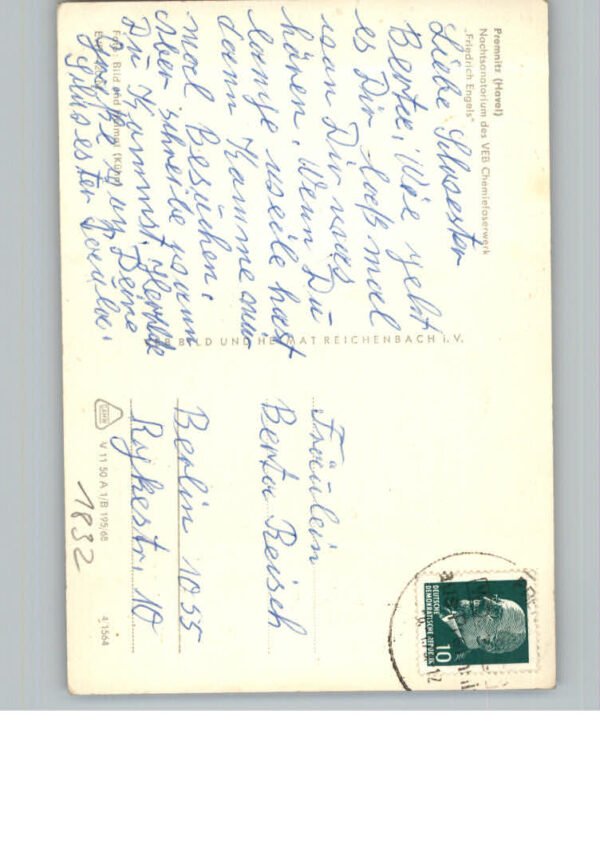 Premnitz (Havel)
Nachtsanatorium des VEB Chemiefaserwerk
„Friedrich Engels"
Liebe Schwester
Berta! Wie geht
es Dir laß mal
von Dir was
hören. Wenn Du
lange weile hast
dann komme mich
mal Besuchen.
Aber schreibe wann
Du kommst. Herzlich
Deine
Paula.
Foto: Bild und Heimat (Kühn)
VEB BILD UND HEIMAT REICHENBACH i. V.
Fräulein
Berta Reisch
Berlin 1055
Rykestr. 10
V 11 50 A 1/B 195/68
4/1564
1832
DEUTSCHE
DEMOKRATISCHE REPUBLIK
10